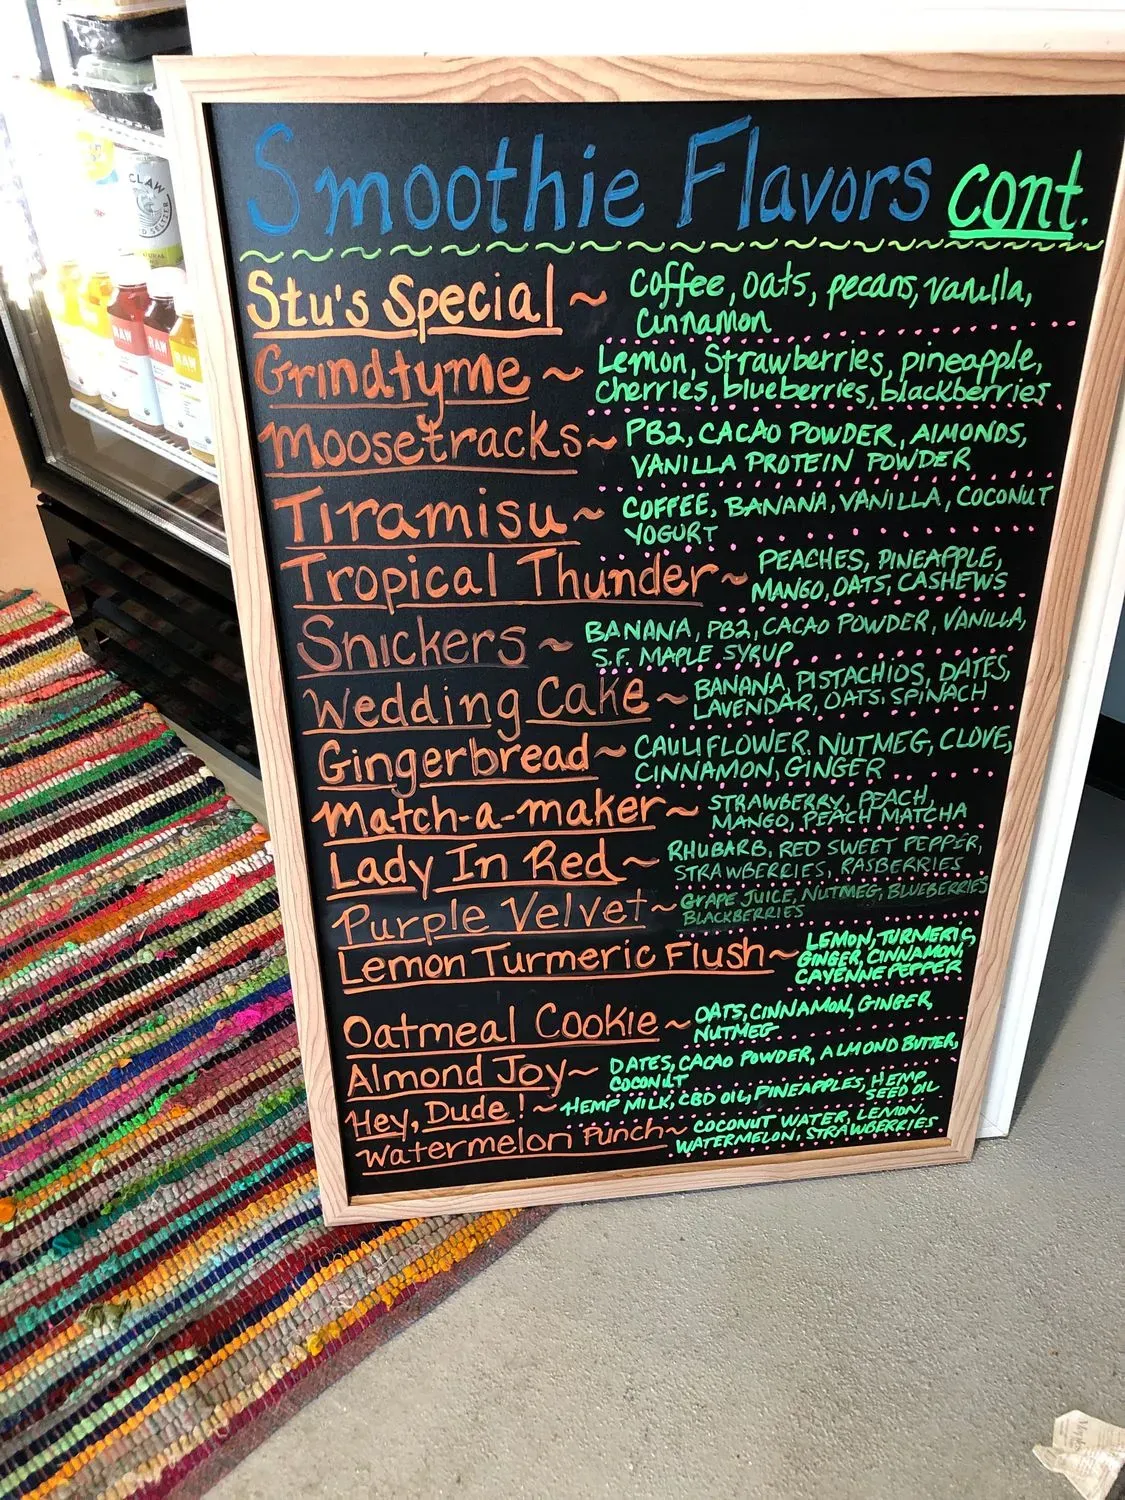 Smoothie Flavors cont.
Stu's Special ~ Coffee, oats, pecans, vanilla,
Cinnamon
Grindtyme ~ Lemon, Strawberries, pineapple,
cherries, blueberries, blackberries
Moosetracks ~ PB2, CACAO POWDER, AlMONDS,
VANILLA PROTEIN POWDER
Tiramisu ~ COFFEE, BANANA, VANILLA, COCONUT
YOGURT
Tropical Thunder ~ PEACHES, PINEAPPLE,
MANGO, OATS, CASHEWS
Snickers ~ BANANA, PB2, CACAO POWDER, VANILLA,
S.F. MAPLE SYRUP
Wedding Cake ~ BANANA, PISTACHIOS, DATES,
LAVENDAR, OATS, SPINACH
Gingerbread ~ CAULIFLOWER, NUTMEG, CLOVE,
CINNAMON, GINGER
Match-a-maker ~ STRAWBERRY, PEACH,
MANGO, PEACH MATCHA
Lady In Red ~ RHUBARB, RED SWEET PEPPER,
STRAWBERRIES, RASBERRIES
Purple Velvet ~ GRAPE JUICE, NUTMEG, BLUEBERRIES
BLACKBERRIES
Lemon Turmeric Flush ~ LEMON, TURMERIC,
GINGER, CINNAMON,
CAYENNE PEPPER
Oatmeal Cookie ~ OATS, CINNAMON, GINGER,
NUTMEG
Almond Joy ~ DATES, CACAO POWDER, ALMOND BUTTER,
COCONUT
Hey, Dude! ~ HEMP MILK, CBD OIL, PINEAPPLES, HEMP
SEED OIL
Watermelon Punch ~ COCONUT WATER, LEMON,
WATERMELON, STRAWBERRIES
CLAW
RAW
RAW
RAW